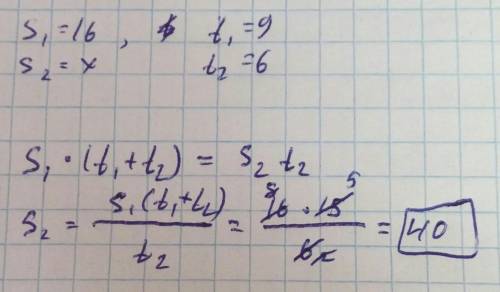 S₁ = 16 , t₁ = 9
S₂ = x t₂ = 6
S₁ · (t₁ + t₂) = S₂ t₂
S₂ = S₁ (t₁ + t₂) / t₂ = 16 · 15 / 6 = 40